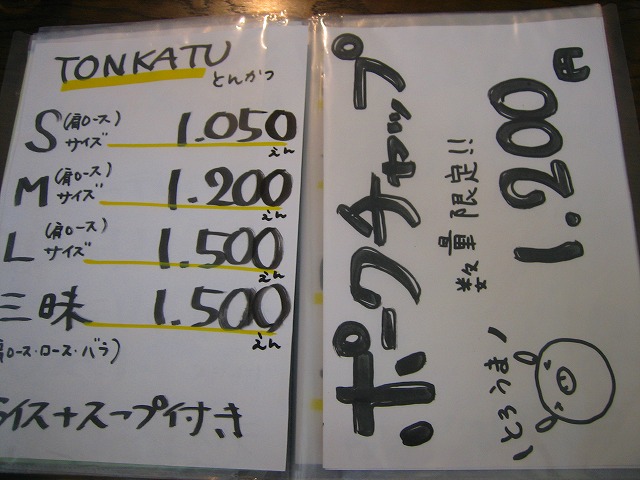 TONKATU
とんかつ
S(肩ロース)サイズ 1.050えん
M(肩ロース)サイズ 1.200えん
L(肩ロース)サイズ 1.500えん
三昧 1.500えん
肩ロース・ロース・バラ)
ライス+スープ付き
ポークチャップ
数量限定!!
1.200円
とろうま!